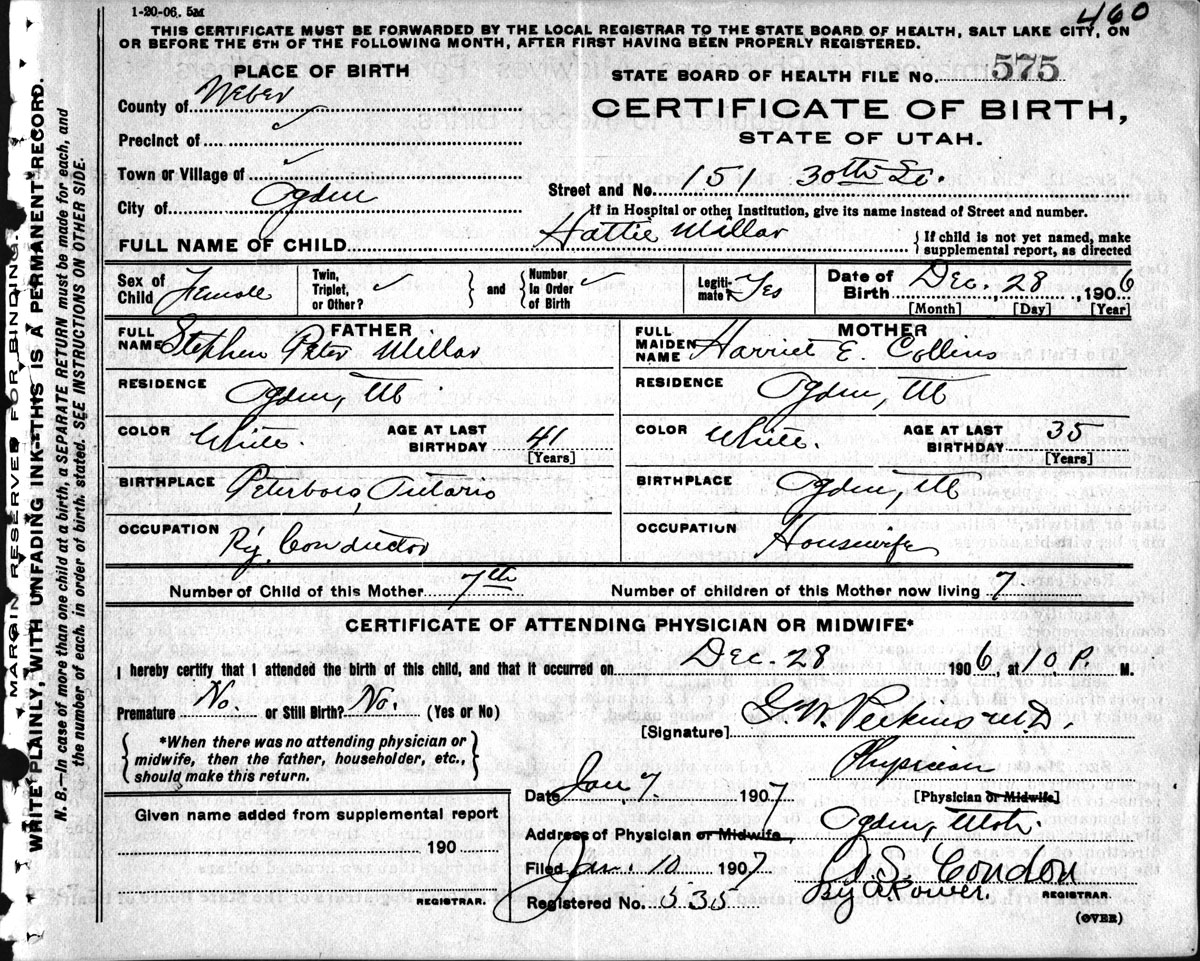 1-20-06. 5M
460
THIS CERTIFICATE MUST BE FORWARDED BY THE LOCAL REGISTRAR TO THE STATE BOARD OF HEALTH, SALT LAKE CITY, ON
OR BEFORE THE 5TH OF THE FOLLOWING MONTH, AFTER FIRST HAVING BEEN PROPERLY REGISTERED.
MARGIN RESERVED FOR BINDING.
WRITE PLAINLY, WITH UNFADING INK--THIS IS A PERMANENT RECORD.
N. B.—In case of more than one child at a birth, a SEPARATE RETURN must be made for each, and
the number of each, in order of birth, stated. SEE INSTRUCTIONS ON OTHER SIDE.
PLACE OF BIRTH
STATE BOARD OF HEALTH FILE No. 575
County of Weber
CERTIFICATE OF BIRTH,
STATE OF UTAH.
Precinct of ✓
Town or Village of ✓
City of Ogden
Street and No. 151 30th St.
If in Hospital or other Institution, give its name instead of Street and number.
FULL NAME OF CHILD Hattie Millar { If child is not yet named, make
supplemental report, as directed
Sex of Child Female
Twin, Triplet, or Other? ✓ } and { Number In Order of Birth ✓
Legitimate? Yes
Date of Birth Dec. 28, 1906
[Month] [Day] [Year]
FATHER
FULL NAME Stephen Peter Millar
RESIDENCE Ogden, Ut
COLOR White. AGE AT LAST BIRTHDAY 41
[Years]
BIRTHPLACE Peterboro, Ontario
OCCUPATION Ry. Conductor
MOTHER
FULL MAIDEN NAME Harriet E. Collins
RESIDENCE Ogden, Ut
COLOR White. AGE AT LAST BIRTHDAY 35
[Years]
BIRTHPLACE Ogden, Ut
OCCUPATION Housewife
Number of Child of this Mother 7th Number of children of this Mother now living 7
CERTIFICATE OF ATTENDING PHYSICIAN OR MIDWIFE*
I hereby certify that I attended the birth of this child, and that it occurred on Dec. 28 1906, at 10 P. M.
Premature No. or Still Birth? No. (Yes or No)
{ *When there was no attending physician or
midwife, then the father, householder, etc.,
should make this return. }
[Signature] G. W. Perkins M.D.
Physician
[Physician or Midwife]
Date Jan 7 1907
Address of Physician or Midwife Ogden, Utah.
Filed Jan 10 1907
Registered No. 535
A S. Condon
By A Power. REGISTRAR.
Given name added from supplemental report
190
REGISTRAR.
(OVER)